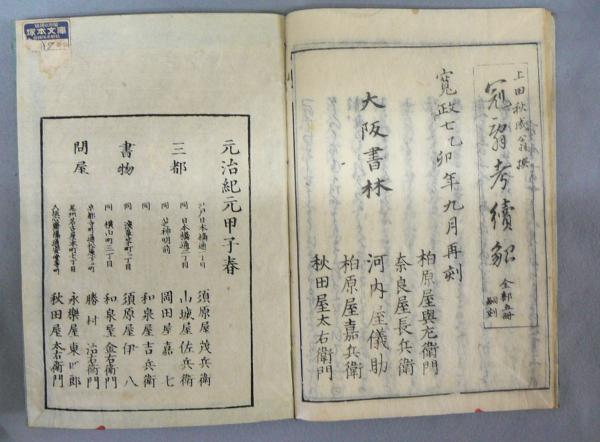 上田秋成翁撰
冠辞考續貂
全部五冊
寛政七乙卯年九月再刻
大阪書林
柏原屋與左衛門
奈良屋長兵衛
河内屋儀助
柏原屋嘉兵衛
秋田屋太右衛門
塚本文庫
元治紀元甲子春
三都
書物
問屋
江戸日本橋通一丁目 須原屋茂兵衛
同 日本橋通二丁目 山城屋佐兵衛
同 芝神明前 岡田屋嘉七
同 和泉屋吉兵衛
同 浅草茅町二丁目 須原屋伊八
同 横山町三丁目 和泉屋金右衛門
京都寺町通松原下ル町 勝村治右衛門
尾州名古屋本町七丁目 永樂屋東四郎
大坂心斎橋通安堂寺町 秋田屋太右衛門